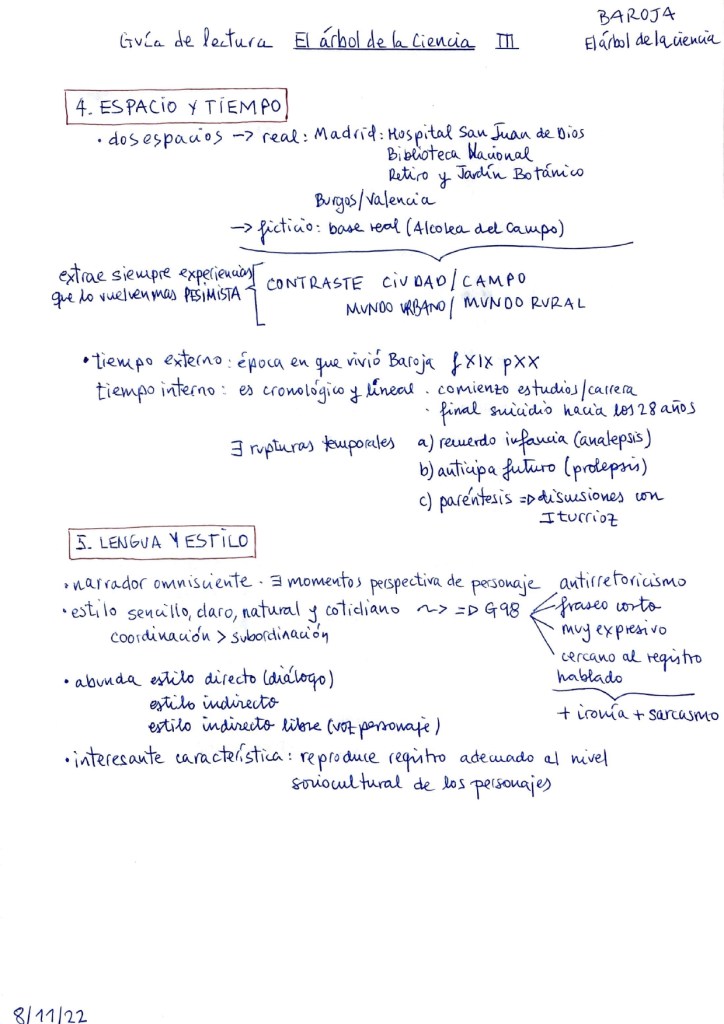 BAROJA
El árbol de la ciencia
Guía de lectura El árbol de la Ciencia III
4. ESPACIO Y TIEMPO
• dos espacios -> real: Madrid: Hospital San Juan de Dios
Biblioteca Nacional
Retiro y Jardín Botánico
Burgos/Valencia
-> ficticio: base real (Alcolea del Campo)
extrae siempre experiencias
que lo vuelven mas PESIMISTA
CONTRASTE CIUDAD/CAMPO
MUNDO URBANO/MUNDO RURAL
• tiempo externo: época en que vivió Baroja fXIX pXX
tiempo interno: es cronológico y líneal . comienzo estudios/carrera
. final suicidio hacia los 28 años
∃ rupturas temporales a) recuerdo infancia (analepsis)
b) anticipa futuro (prolepsis)
c) paréntesis => discusiones con
Iturrioz
5. LENGUA Y ESTILO
• narrador omnisciente . ∃ momentos perspectiva de personaje
• estilo sencillo, claro, natural y cotidiano ~> => G98
coordinación > subordinación
antirretoricismo
fraseo corto
muy expresivo
cercano al registro
hablado
+ ironía + sarcasmo
• abunda estilo directo (diálogo)
estilo indirecto
estilo indirecto libre (voz personaje)
• interesante característica: reproduce registro adecuado al nivel
sociocultural de los personajes
8/11/22